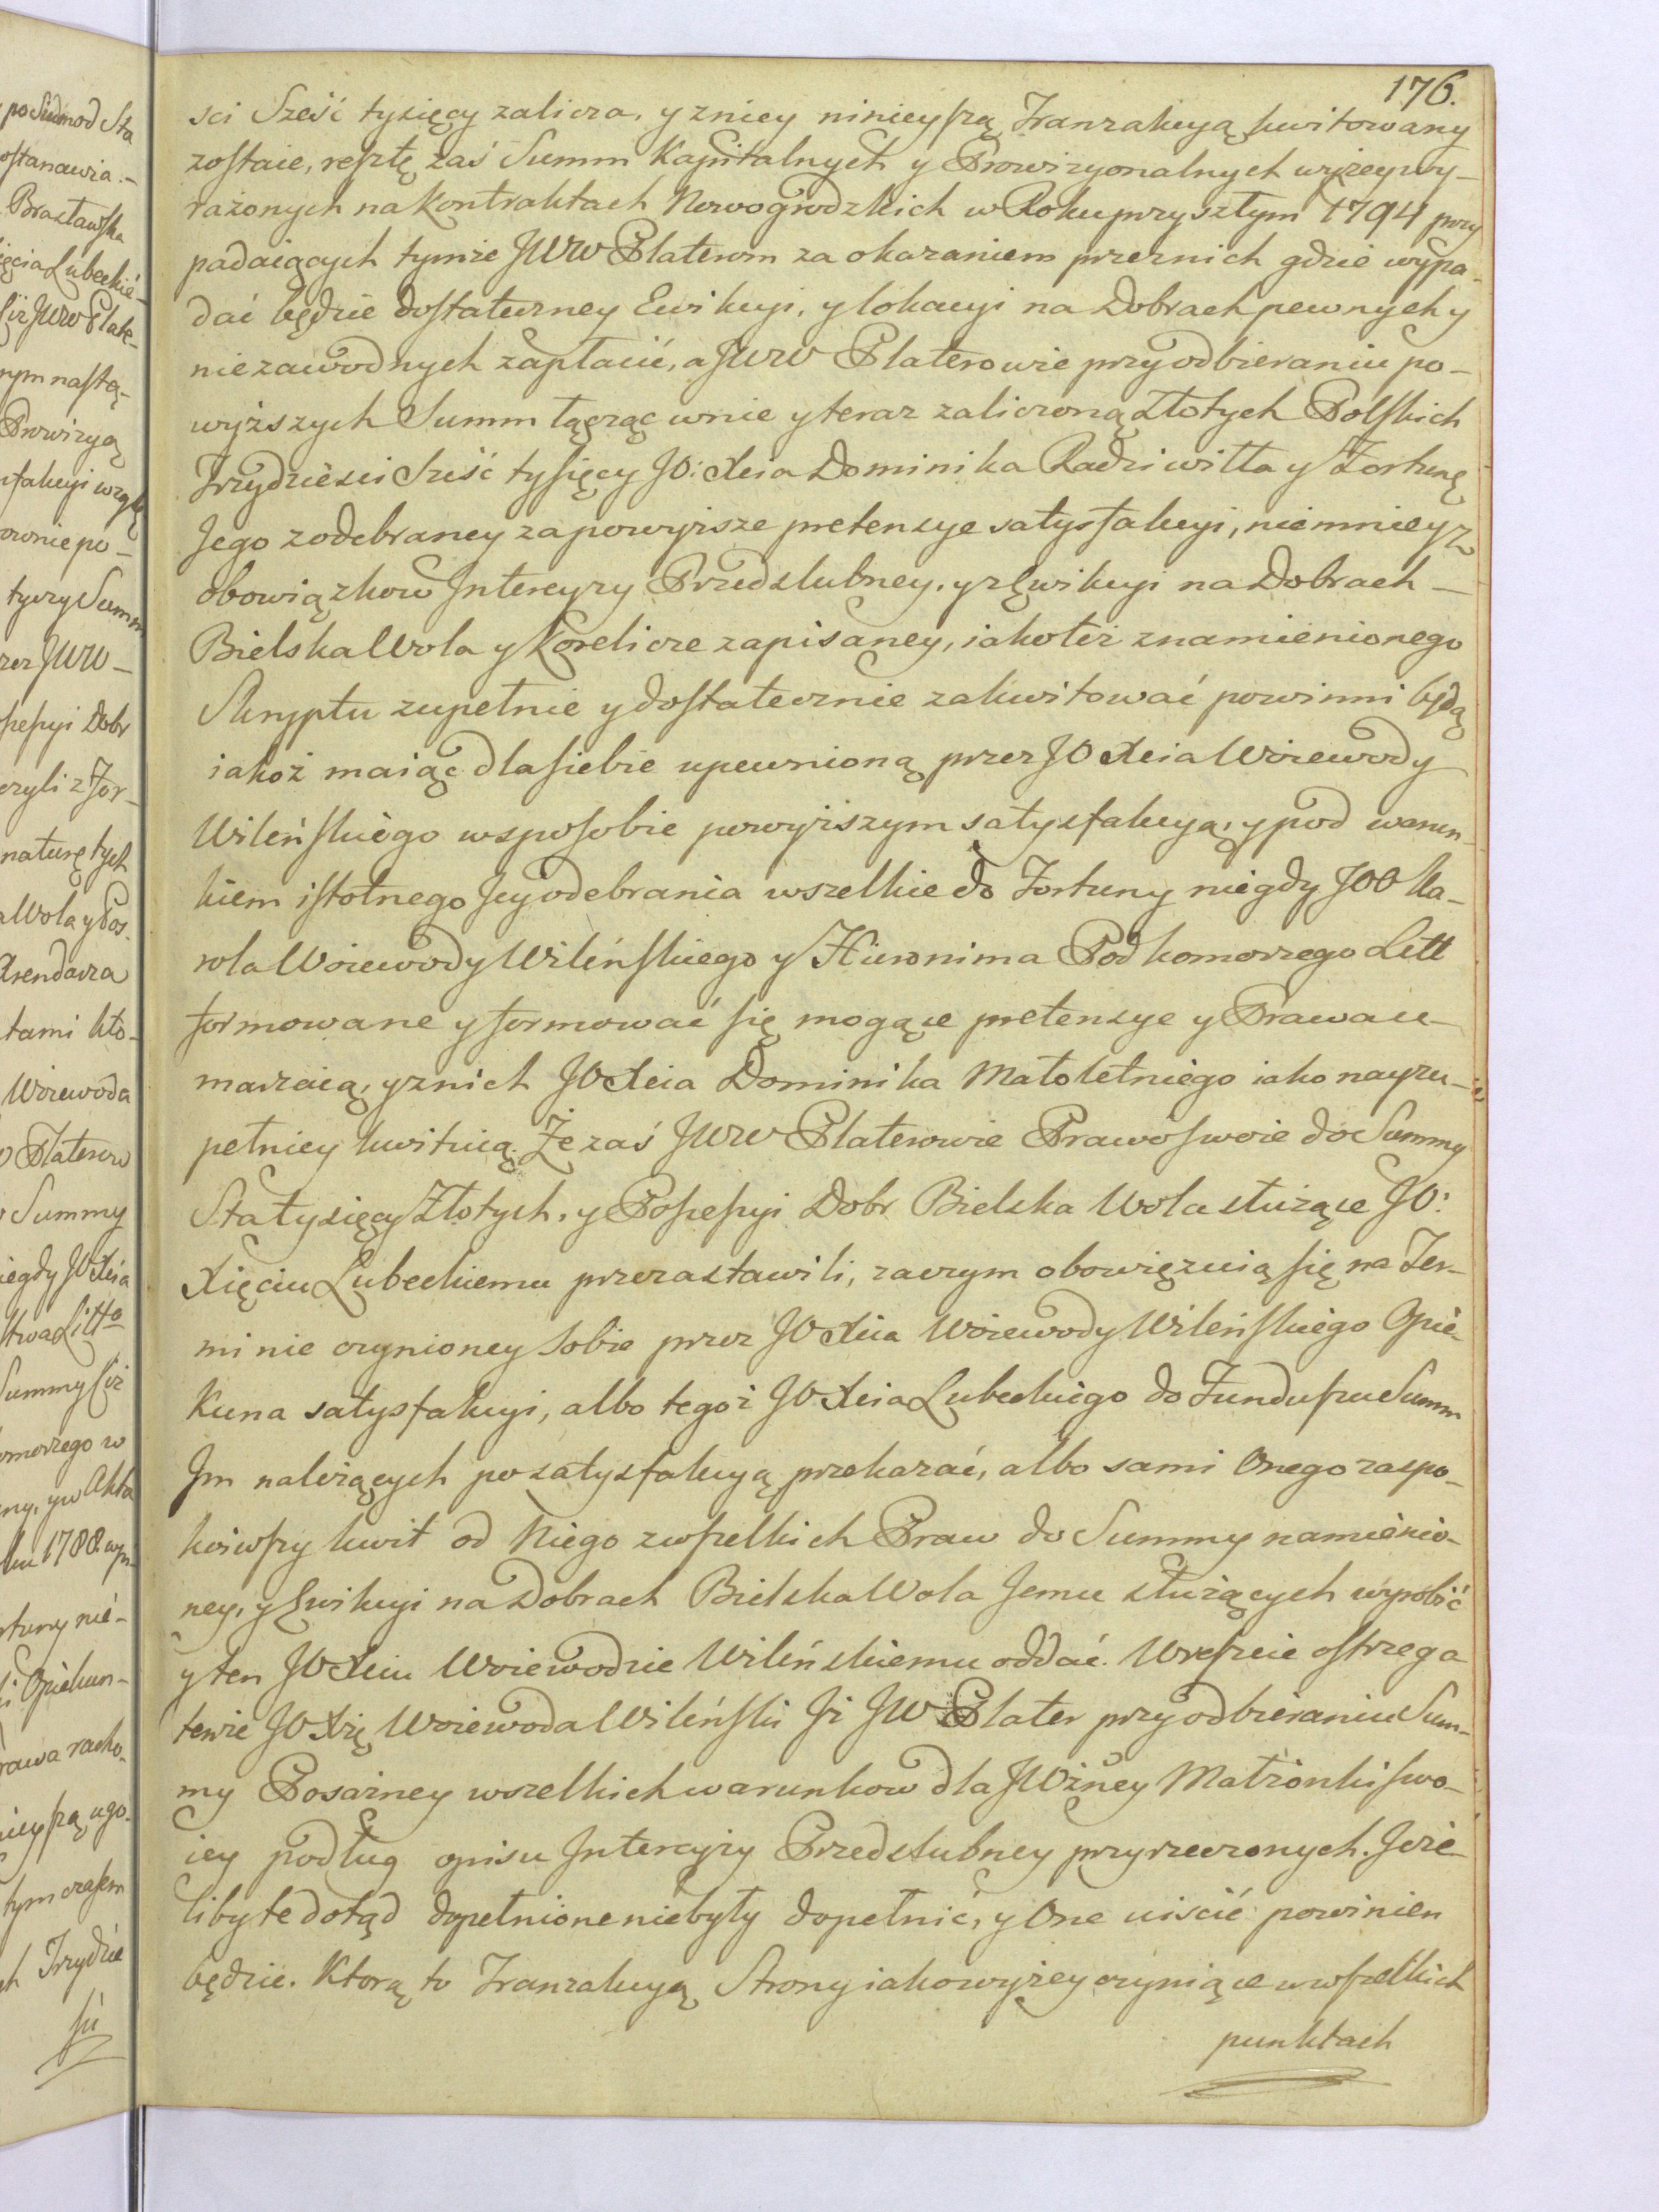 176.
sci Sześć tysięcy zalicza, y zniey ninieyszą Tranzakcyą kwitowany
zostaie, resztę zaś Summ Kapitalnych y Prowizyonalnych wyżeywy-
rażonych na Kontraktach Nowogrodzkich w Roku przyszłym 1794 przy
padaiących tymże JWW Platerom za okazaniem przeznich gdzie wypa-
dać będzie dostateczney Ewikcyi, y lokacyi na Dobrach pewnych y
niezawodnych zapłacić, a JWW Platerowie przy odbieraniu po-
wyższych Summ łącząc wnie y teraz zaliczoną Złotych Polskich
Trzydzieści Sześć tysięcy JO: Xcia Dominika Radziwiłła y Fortunę
Jego z odebraney za powyższe pretensye satysfakcyi, niemniey z
obowiązkow Intercyzy Przedslubney, y z Ewikcyi na Dobrach —
Bielska Wola y Korelicze zapisaney, iako też znamienionego
Skryptu zupełnie y dostatecznie zakwitować powinni będą
iakoż maiąc dla siebie upewnioną przez JO Xcia Woiewody
Wileńskiego w sposobie powyższym satysfakcyą, y pod warun-
kiem istotnego Jey odebrania wszelkie do Fortuny niegdy JOO Ka-
rola Woiewody Wileńskiego y Hieronima Podkomorzego Litt
formowane y formować się mogące pretensye y Prawa u-
marzaią, y z nich JO Xcia Dominika Małoletniego iako nayzu-
pełniey kwituią. Że zaś JWW Platerowie Prawo swoie do Summy
Sta tysięcy Złotych, y Possessyi Dobr Bielska Wola służące JO:
Xięciu Lubeckiemu przezastawili, zaczym obowięzuią się na Ter-
minie czynioney Sobie przez JO Xcia Woiewody Wileńskiego Opie-
kuna satysfakcyi, albo tegoż JO Xcia Lubeckiego do Funduszu Summ
Im należących po satysfakcyą przekazać, albo sami Onego zaspo-
koiwszy kwit od Niego z wszelkich Praw do Summy namienio-
ney, y Ewikcyi na Dobrach Bielska Wola Jemu służących wyrobić
y ten JO Xciu Woiewodzie Wileńskiemu oddać. Wreszcie ostrzega
tenże JO Xżę Woiewoda Wileński Iż JW Plater przy odbieraniu Sum-
my Posażney wszelkich warunkow dla JWżney Małżonki swo-
iey podług opisu Intercyzy Przedslubney przyrzeczonych. Jeże-
liby te dotąd dopełnione niebyły dopełnić, y One uiścić powinien
będzie. Ktorą to Tranzakcyą Strony iako wyżey czyniące w wszelkich
punktach